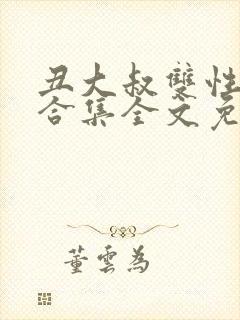 丑大叔雙性
合集全文免
董雲為